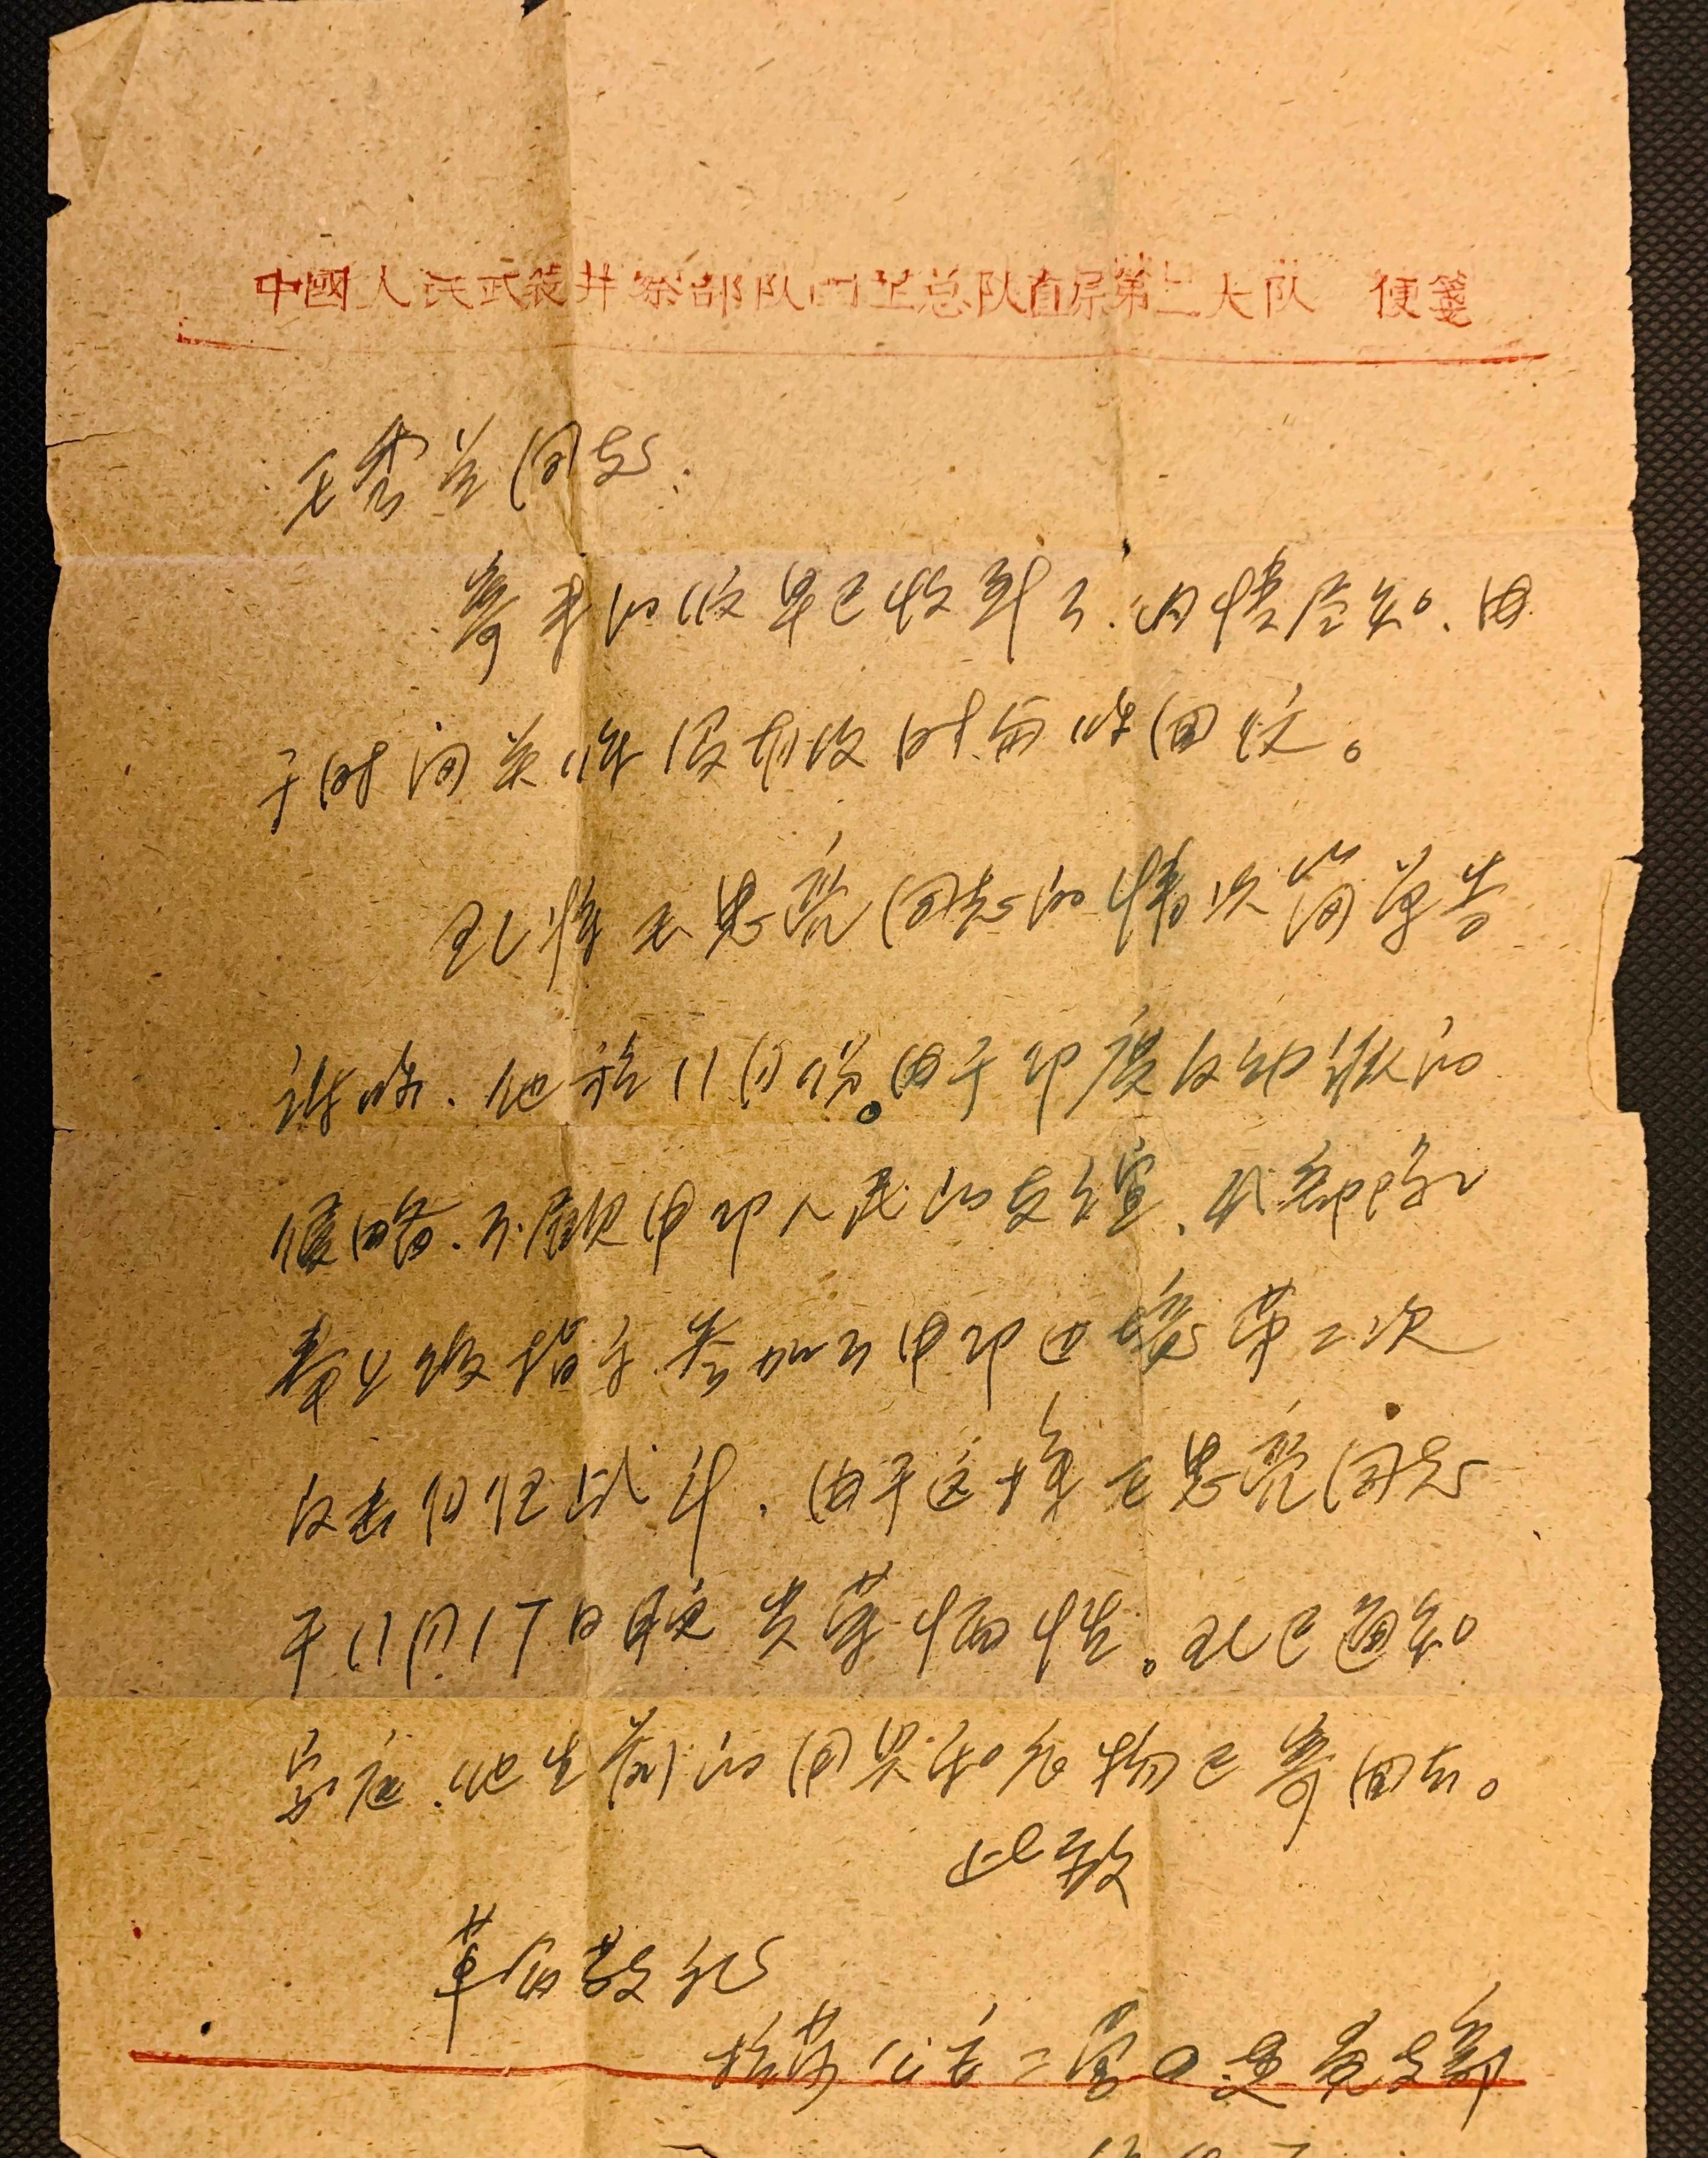 中國人民武装井察部队西芷总队直属第二大队 便箋
王秀兰同志:
寄来的信早已收到了.内情尽知.由
于时间关系没有及时给你回信。
现将王思亮同志的情况简单告
诉你.他于11月份。由于印度反动派的
侵略.不顾中印人民的友谊、我部队
奉上级指示参加了中印边境第二次
反击自卫战斗.由于这样王思亮同志
于11月17日晚光荣牺牲。现已通知
家庭.他生前的用具和衣物已寄回去。
此致
革命敬礼
拉萨公安二营 连党支部